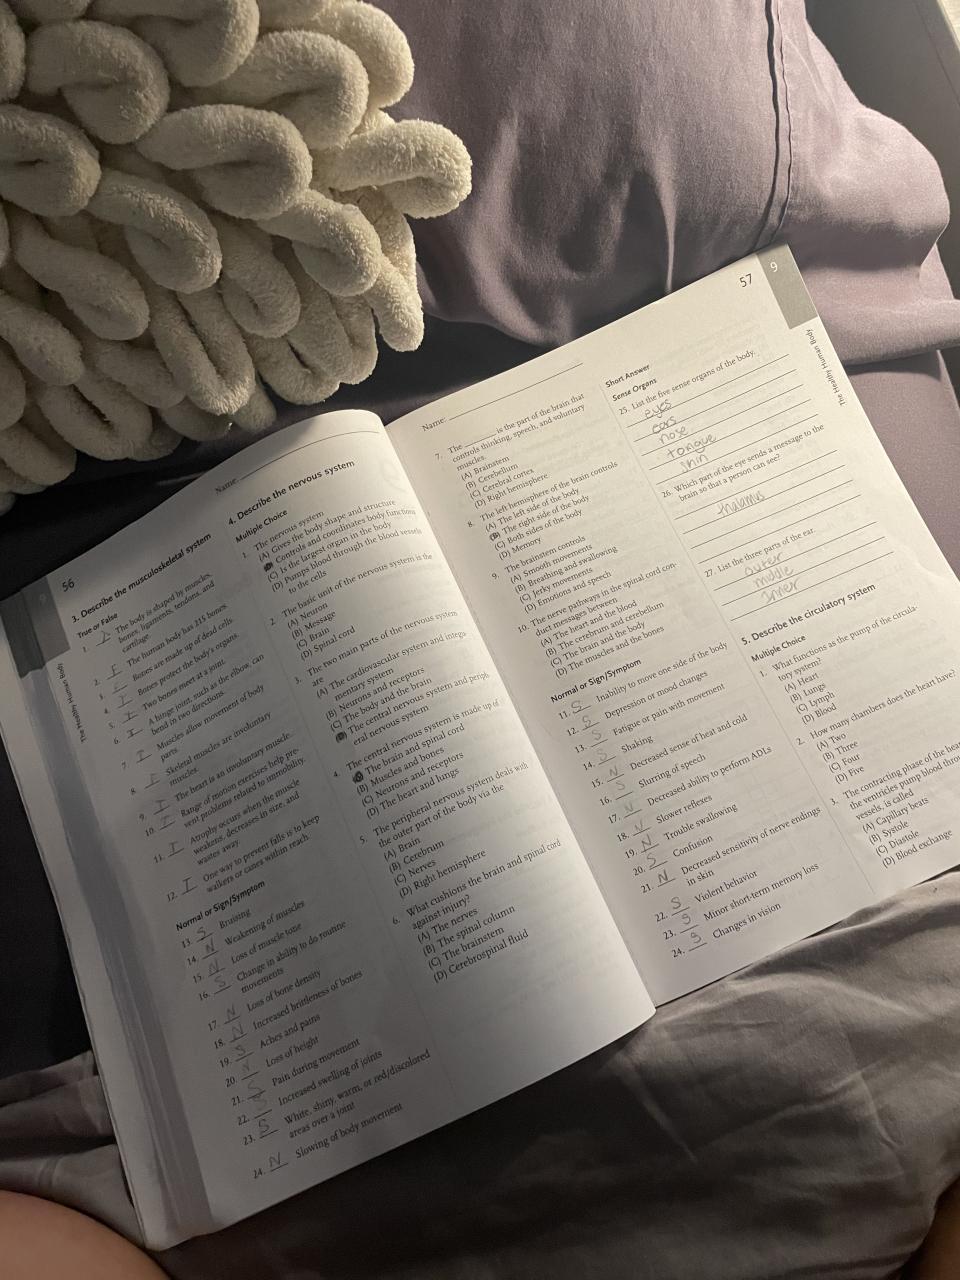 56
The Healthy Human Body
Name:
3. Describe the musculoskeletal system
True or False
1. The body is shaped by muscles,
bones, ligaments, tendons, and
cartilage.
2. The human body has 215 bones.
3. Bones are made up of dead cells.
4. Bones protect the body's organs.
5. Two bones meet at a joint.
6. A hinge joint, such as the elbow, can
bend in two directions.
7. Muscles allow movement of body
parts.
8. Skeletal muscles are involuntary
muscles.
9. The heart is an involuntary muscle.
10. Range of motion exercises help pre-
vent problems related to immobility.
11. Atrophy occurs when the muscle
weakens, decreases in size, and
wastes away.
12. One way to prevent falls is to keep
walkers or canes within reach.
Normal or Sign/Symptom
13. S Bruising
14. N Weakening of muscles
15. N Loss of muscle tone
16. S Change in ability to do routine
movements
17. N Loss of bone density
18. N Increased brittleness of bones
19. S Aches and pains
20. N Loss of height
21. S Pain during movement
22. S Increased swelling of joints
23. S White, shiny, warm, or red/discolored
areas over a joint
24. N Slowing of body movement
4. Describe the nervous system
Multiple Choice
1. The nervous system
(A) Gives the body shape and structure
Controls and coordinates body functions
(C) Is the largest organ in the body
(D) Pumps blood through the blood vessels
to the cells
2. The basic unit of the nervous system is the
(A) Neuron
(B) Message
(C) Brain
(D) Spinal cord
3. The two main parts of the nervous system
are
(A) The cardiovascular system and integu
mentary system
(B) Neurons and receptors
(C) The body and the brain
The central nervous system and periph
eral nervous system
4. The central nervous system is made up of
The brain and spinal cord
(B) Muscles and bones
(C) Neurons and receptors
(D) The heart and lungs
5. The peripheral nervous system deals with
the outer part of the body via the
(A) Brain
(B) Cerebrum
(C) Nerves
(D) Right hemisphere
6. What cushions the brain and spinal cord
against injury?
(A) The nerves
(B) The spinal column
(C) The brainstem
(D) Cerebrospinal fluid
57
9
The Healthy Human Body
Name:
7. The is the part of the brain that
controls thinking, speech, and voluntary
muscles.
(A) Brainstem
(B) Cerebellum
(C) Cerebral cortex
(D) Right hemisphere
8. The left hemisphere of the brain controls
(A) The left side of the body
(B) The right side of the body
(C) Both sides of the body
(D) Memory
9. The brainstem controls
(A) Smooth movements
(B) Breathing and swallowing
(C) Jerky movements
(D) Emotions and speech
10. The nerve pathways in the spinal cord con-
duct messages between
(A) The heart and the blood
(B) The cerebrum and cerebellum
(C) The brain and the body
(D) The muscles and the bones
Normal or Sign/Symptom
11. S Inability to move one side of the body
12. S Depression or mood changes
13. S Fatigue or pain with movement
14. S Shaking
15. N Decreased sense of heat and cold
16. S Slurring of speech
17. N Decreased ability to perform ADLs
18. N Slower reflexes
19. N Trouble swallowing
20. S Confusion
21. N Decreased sensitivity of nerve endings
in skin
22. S Violent behavior
23. S Minor short-term memory loss
24. S Changes in vision
Short Answer
Sense Organs
25. List the five sense organs of the body.
eyes
ears
nose
tongue
skin
26. Which part of the eye sends a message to the
brain so that a person can see?
thalamus
27. List the three parts of the ear.
outer
middle
inner
5. Describe the circulatory system
Multiple Choice
1. What functions as the pump of the circula-
tory system?
(A) Heart
(B) Lungs
(C) Lymph
(D) Blood
2. How many chambers does the heart have?
(A) Two
(B) Three
(C) Four
(D) Five
3. The contracting phase of the hear
the ventricles pump blood throu
vessels, is called
(A) Capillary beats
(B) Systole
(C) Diastole
(D) Blood exchange